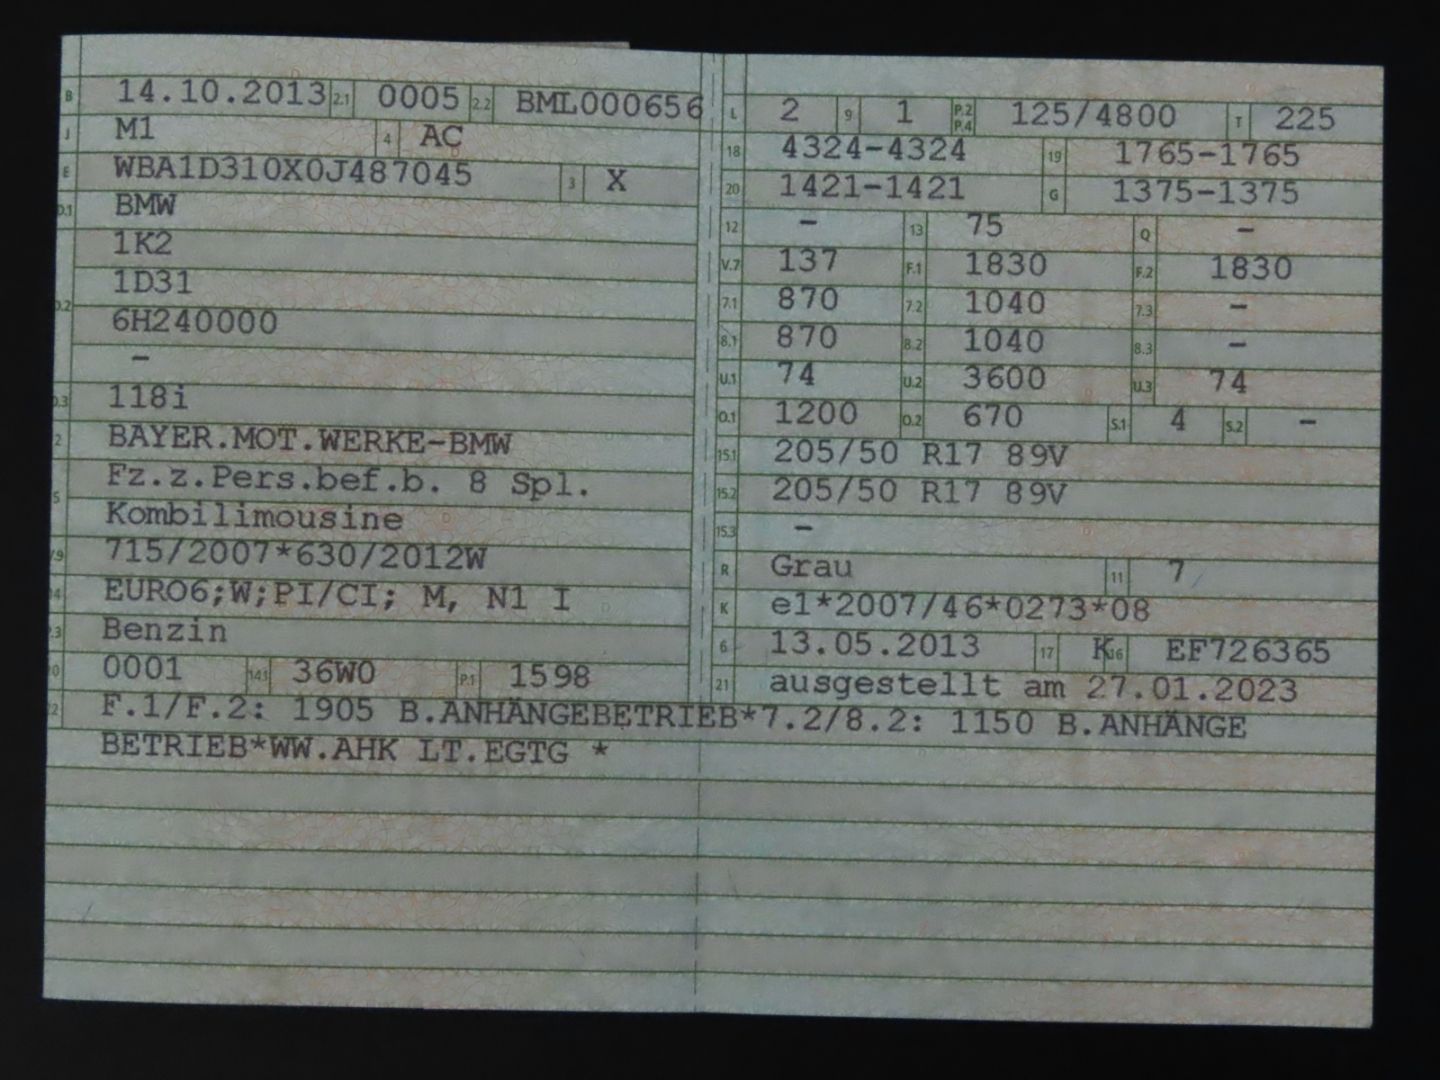 B 14.10.2013 2.1 0005 2.2 BML000656
J M1 4 AC
E WBA1D310X0J487045 3 X
D.1 BMW
1K2
1D31
D.2 6H240000
–
D.3 118i
2 BAYER.MOT.WERKE-BMW
Fz.z.Pers.bef.b. 8 Spl.
5 Kombilimousine
V9 715/2007*630/2012W
14 EURO6;W;PI/CI; M, N1 I
P.3 Benzin
10 0001 14.1 36W0 P.1 1598
L 2 9 1 P.2 P.4 125/4800 T 225
18 4324-4324 19 1765-1765
20 1421-1421 G 1375-1375
12 – 13 75 Q –
V.7 137 F.1 1830 F.2 1830
7.1 870 7.2 1040 7.3 –
8.1 870 8.2 1040 8.3 –
U.1 74 U.2 3600 U.3 74
O.1 1200 O.2 670 S.1 4 S.2 –
15.1 205/50 R17 89V
15.2 205/50 R17 89V
15.3 –
R Grau 11 7
K e1*2007/46*0273*08
6 13.05.2013 17 K 16 EF726365
21 ausgestellt am 27.01.2023
22 F.1/F.2: 1905 B.ANHÄNGEBETRIEB*7.2/8.2: 1150 B.ANHÄNGE
BETRIEB*WW.AHK LT.EGTG *